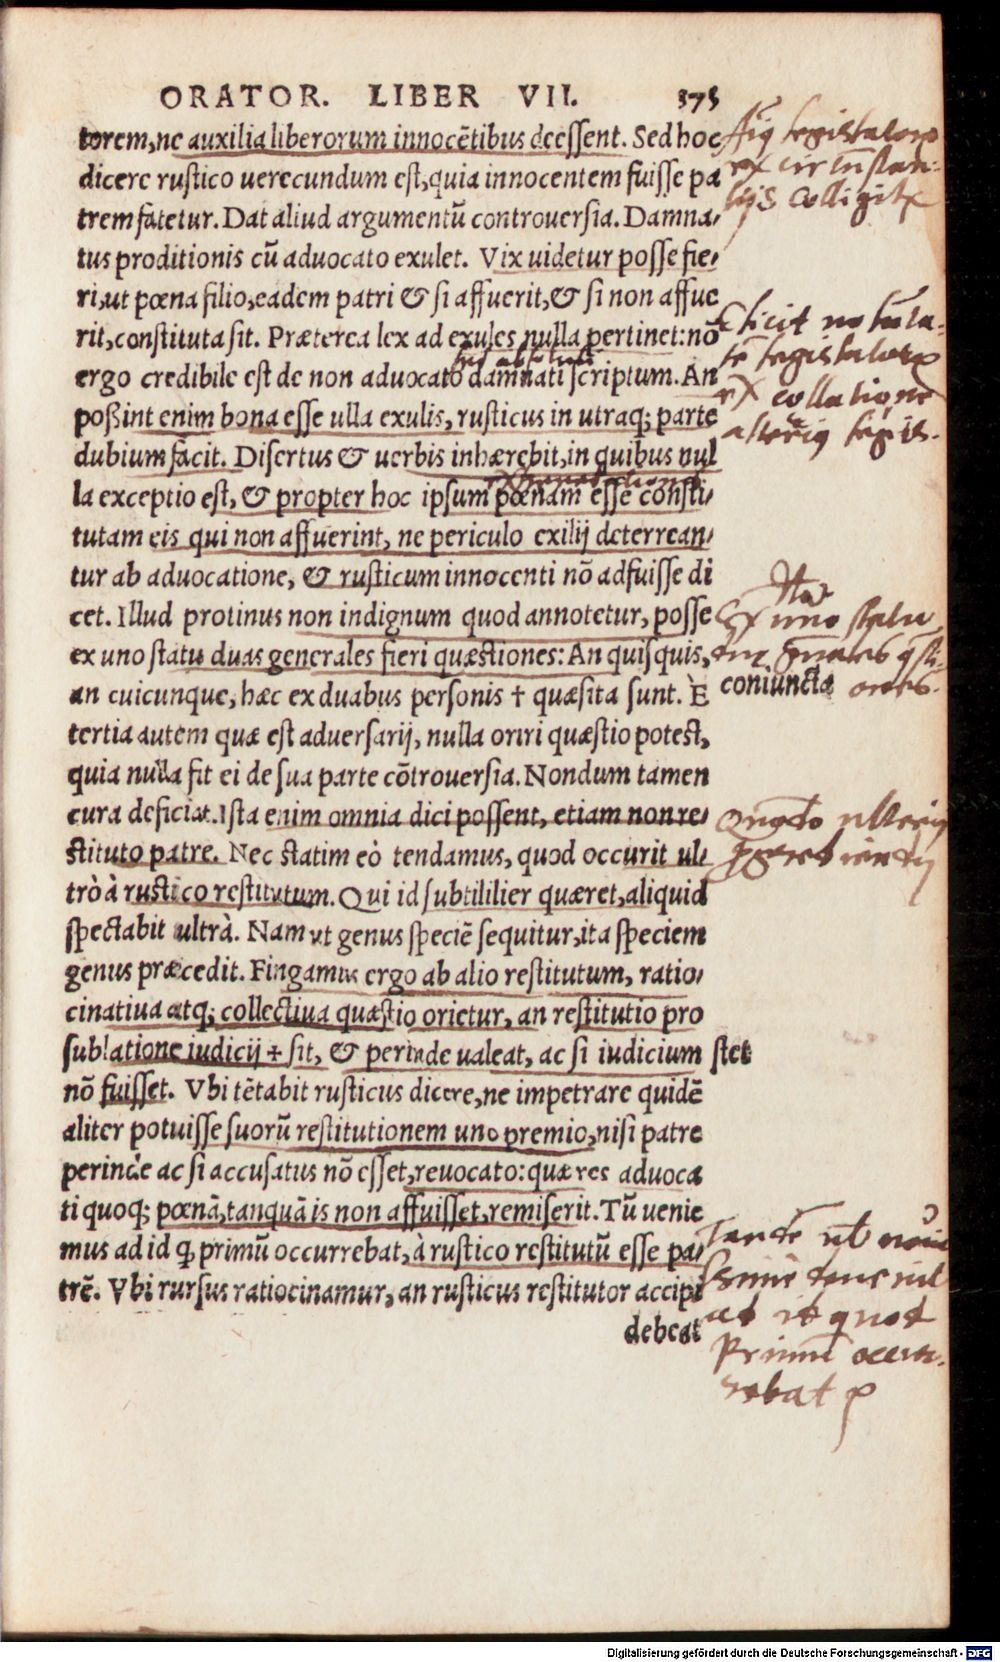 ORATOR. LIBER VII. 375
torem,ne auxilia liberorum innocẽtibus deessent. Sed hoc
dicere rustico uerecundum est,quia innocentem fuisse pa
trem fatetur. Dat aliud argumentũ controuersia. Damna,
tus proditionis cũ aduocato exulet. Vix uidetur posse fie,
ri,ut pœna filio,eadem patri & si affuerit,& si non affue
rit,constituta sit. Præterea lex ad exules nulla pertinet:nõ
ergo credibile est de non aduocato damnati scriptum. An
poßint enim bona esse ulla exulis, rusticus in utraq; parte
dubium facit. Disertus & uerbis inhærebit,in quibus nul
la exceptio est, & propter hoc ipsum pœnam esse consti,
tutam eis qui non affuerint, ne periculo exilij deterrean,
tur ab aduocatione, & rusticum innocenti nõ adfuisse di
cet. Illud protinus non indignum quod annotetur, posse
ex uno statu duas generales fieri quæstiones: An quisquis,
an cuicunque, hæc ex duabus personis † quæsita sunt. È
coniuncta
tertia autem quæ est aduersarij, nulla oriri quæstio potest,
quia nulla fit ei de sua parte cõtrouersia. Nondum tamen
cura deficiat. Ista enim omnia dici possent, etiam non re,
stituto patre. Nec statim eò tendamus, quod occurit ul,
trò à rustico restitutum. Qui id subtililier quæret,aliquid
spectabit ultrà. Nam ut genus speciẽ sequitur,ita speciem
genus præcedit. Fingamus ergo ab alio restitutum, ratio,
cinatiua atq; collectiua quæstio orietur, an restitutio pro
sublatione iudicij † sit, & perinde ualeat, ac si iudicium stet
nõ fuisset. Vbi tẽtabit rusticus dicere,ne impetrare quidẽ
aliter potuisse suorũ restitutionem uno premio,nisi patre
perinde ac si accusatus nõ esset,reuocato:quæ res aduoca
ti quoq; pœnã,tanquã is non affuisset,remiserit. Tũ uenie
mus ad id ꝙ primũ occurrebat,à rustico restitutũ esse pa,
trẽ. Vbi rursus ratiocinamur, an rusticus restitutor accipi
debeat
legislatoris
ex circũstan:
tijs colligit
legislatoris
ex collatione
alterius legis.
Ex uno statu
Tandẽ
ad id quod
Primũ occur:
rebat